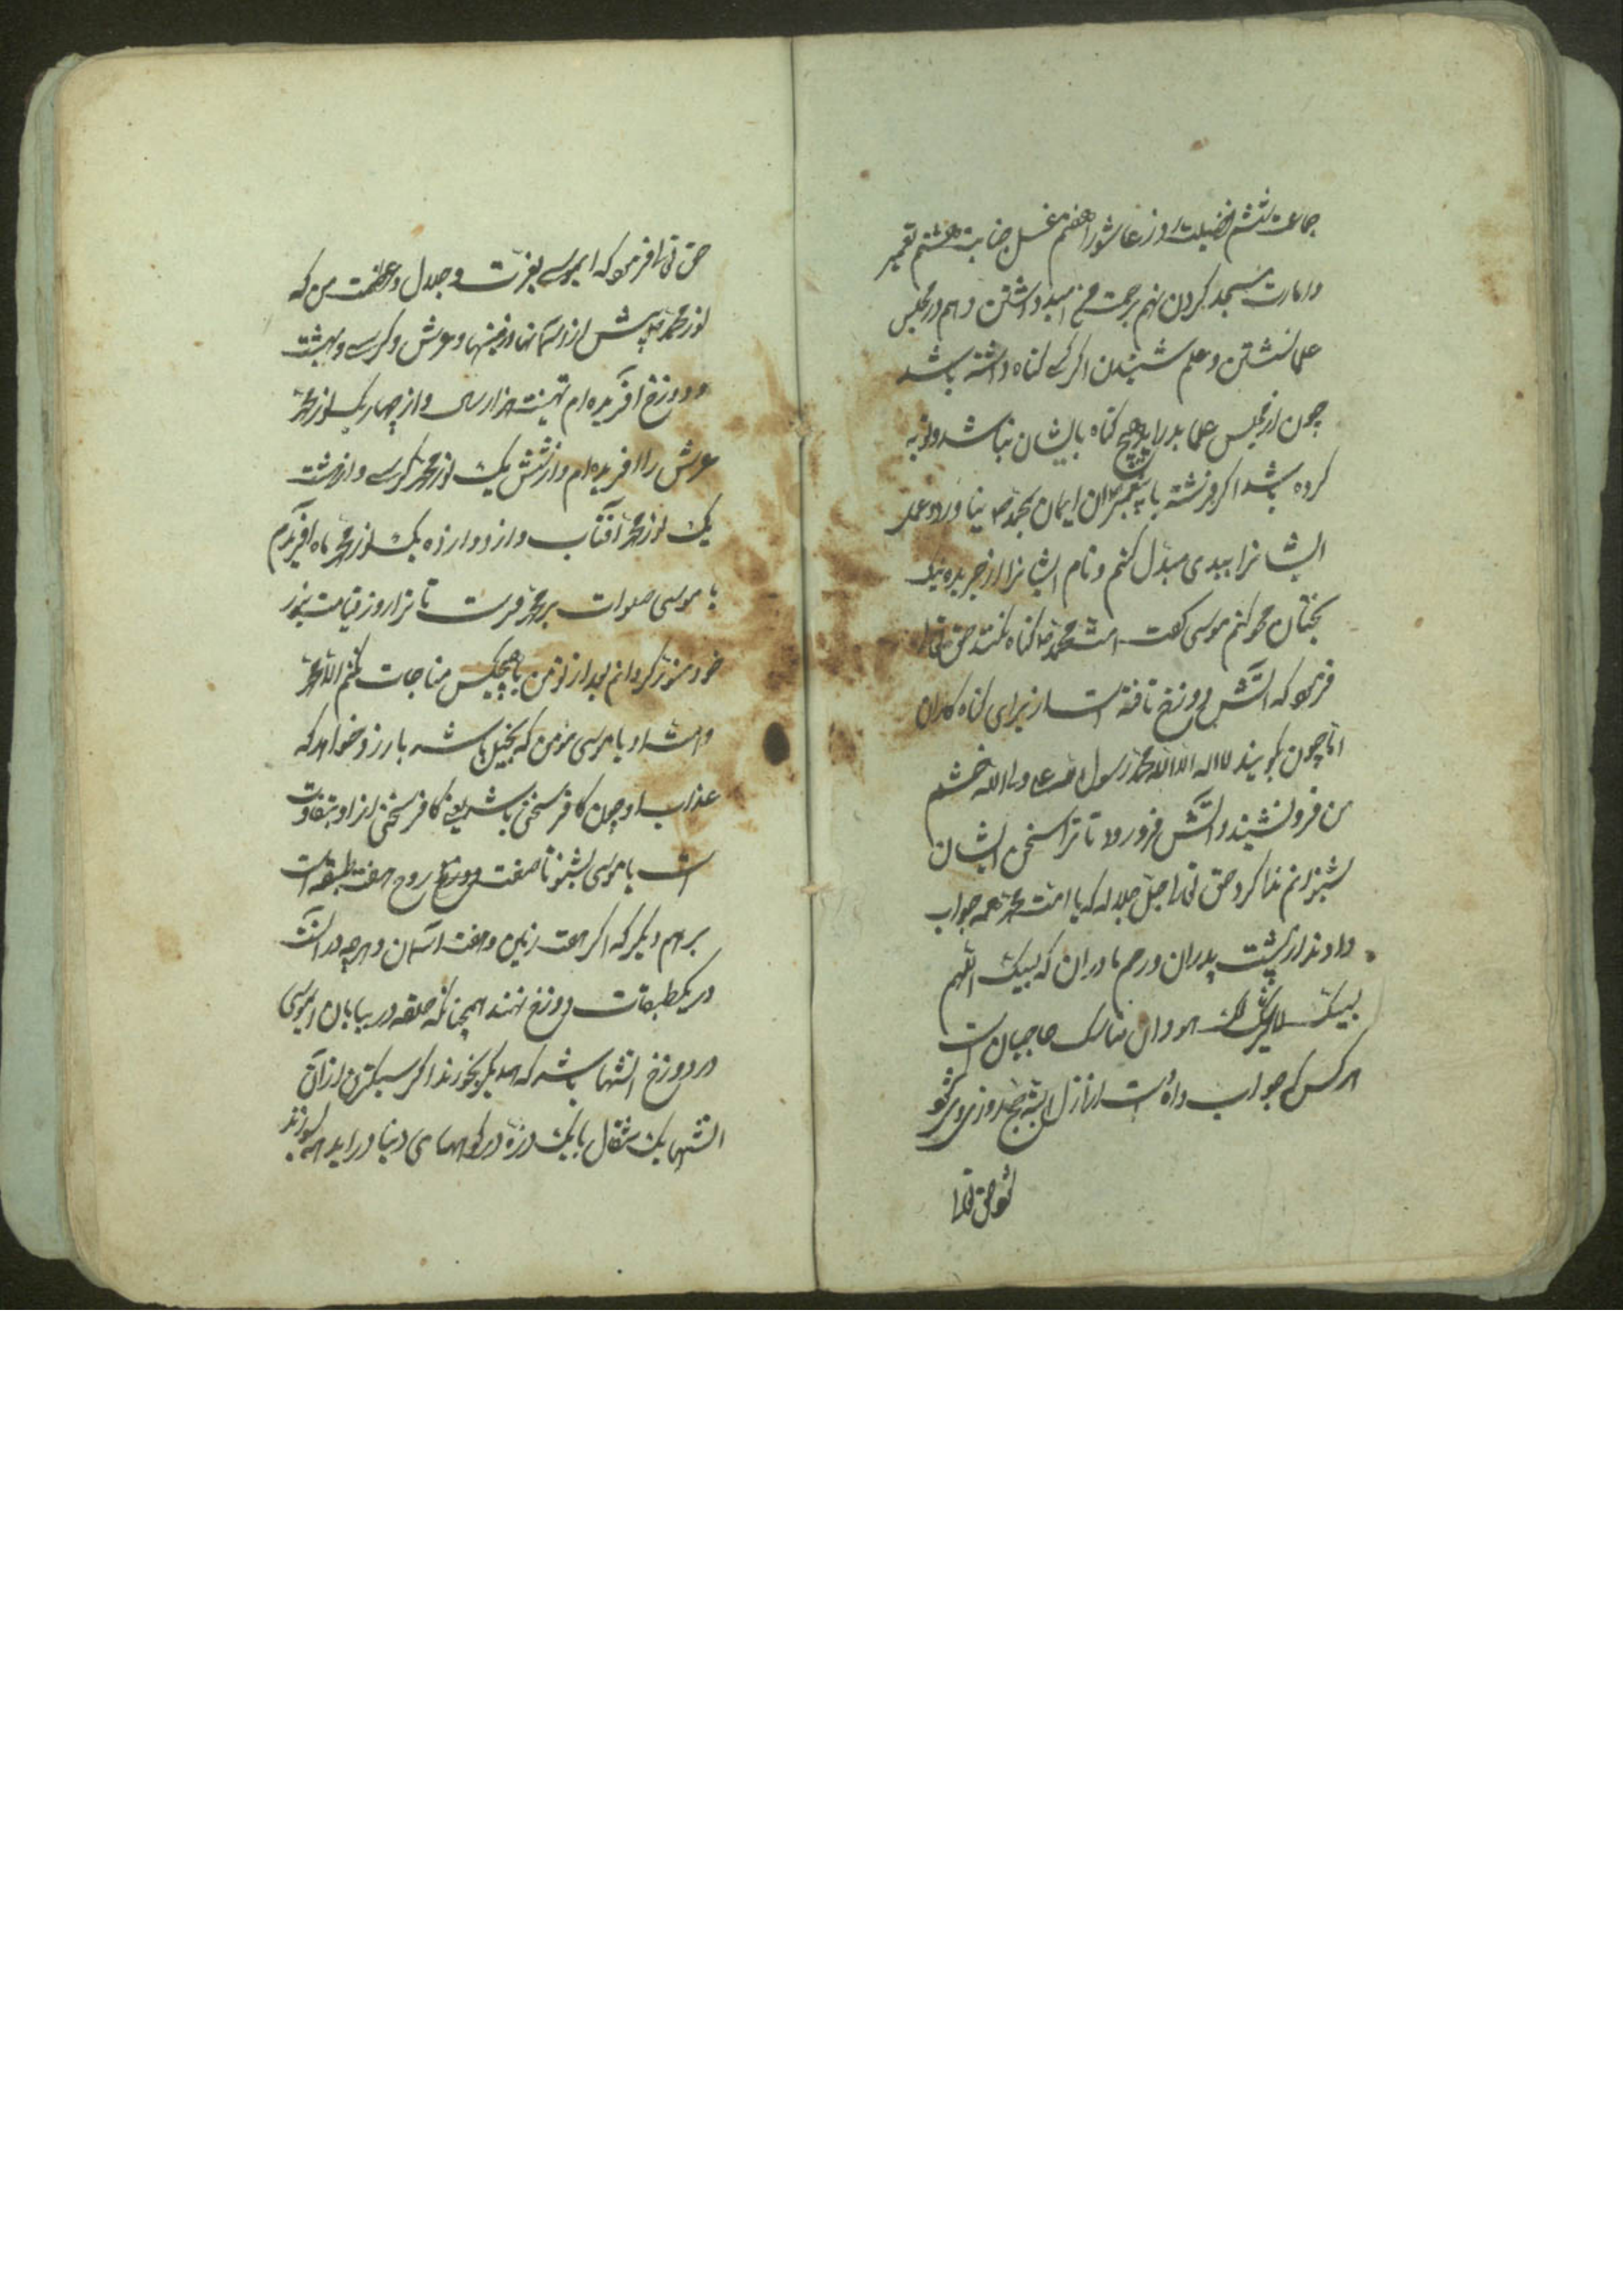 جماعت ششم فضیلت روز عاشورا هفتم غسل جنابت هشتم تعمیر
و امارت مسجد کردن نهم برحمت من امید داشتن دهم در مجلس
علما نشستن و علم شنیدن اگر کسے گناه داشته باشد
چون از مجلس علما بدر اید هیچ گناه بایشان نباشد و توبه
کرده باشد اگر فرشته یا پیغمبران ایمان بمحمد نیاورد عمل
ایشانرا ببدی مبدل کنم و نام ایشانرا از جریده نیک
بختان محو کنم موسی کفت امت محمد گناه نکنند حق تعالی
فرمود که اتش دوزخ تافته است از برای گناه کاران
اما چون بگویند لا اله الا الله محمد رسول الله خشم
من فرو نشیند و اتش فرو رود تا ترا سخن ایشان
بشنوانم ندا کرد حق تعالی جل جلاله که یا امت محمد همه جواب
دادند از پشت پدران و رحم مادران که لبیک اللهم
لبیک لا شریک لک هو و ان مناسک حاجیان است
هر کس که جواب داده است از ازل البته حج روزی وی شود
شود حق تعالی
حق تعالی فرمود که ایموسے بعزت و جلال و عظمت من که
نور محمد پیش از اسمانها و زمینها و عرش و کرسے و بهشت
و دوزخ افریده ام هزار سال و از چهار یک نور محمد
عرش را افریده ام و از شش یک نور محمد کرسے و از هشت
یک نور محمد افتاب و از دوازده یک نور محمد ماه افریدم
یا موسی صلوات بر محمد فرست تا ترا روز قیامت بنور
خود منور کردانم بعد از تو من با هیچکس مناجات نکنم الا محمد
و امت او یا موسی مؤمن که بخیل باشد بارزو خواهد که
عذاب او چون کافر سخی باشد یعنے کافر سخی از او بتفاوت
است یا موسی بشنو تا صفت دوزخ هفت طبقه است
بر هم دیگر که اگر هفت زمین و هفت اسمان و هرچه در انست
در یکطبقات دوزخ نهند همچنانکه حلقه در بیابان ایموسی
در دوزخ اتشها باشد که همدیگر بخورند اگر سبکترین از ان
اتشها یک مثقال یا یک ذره در کوههای دنیا در اید همه بسوزند